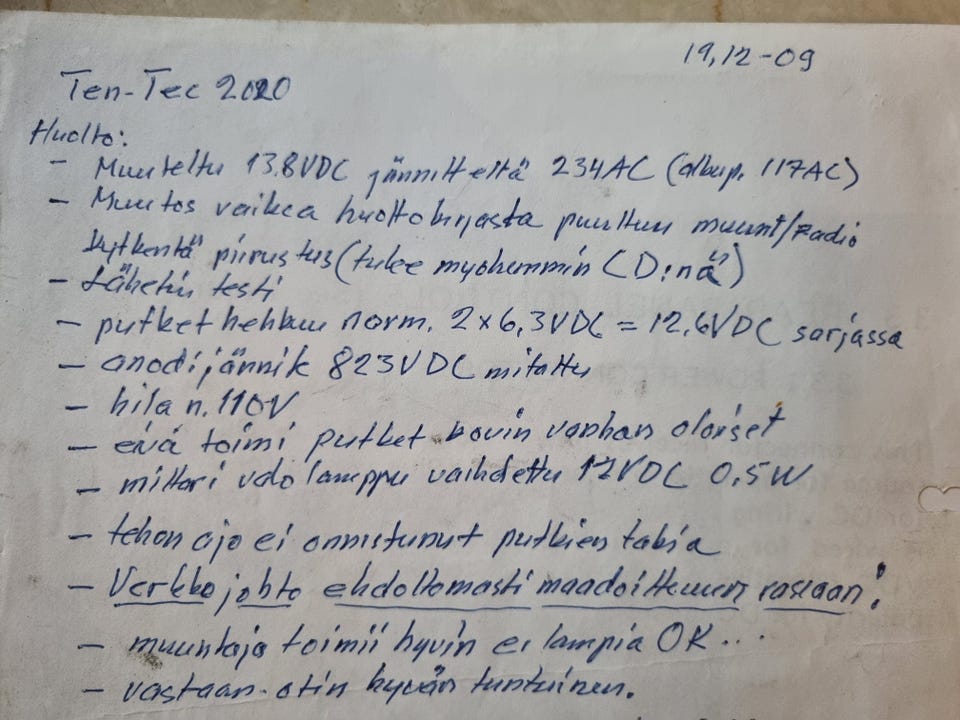 19,12-09
Ten-Tec 2020
Huolto:
- Muuteltu 13.8VDC jännitteltä 234AC (alkup. 117AC)
- Muutos vaikea huoltokirjasta puuttuu muunt/radio
kytkentä piirustus (tulee myöhemmin CD:nä)
- Lähetin testi
- putket hehkuu norm. 2x6,3VDC = 12.6VDC sarjassa
- anodijännit 823VDC mitattu
- hila n. 110V
- eivä toimi putket kovin vanhan oloiset
- mittari valo lamppu vaihdettu 12VDC 0,5W
- tehon ajo ei onnistunut putkien takia
- Verkkojohto ehdottomasti maadoitettuun rasiaan!
- muuntaja toimii hyvin ei lämpiä OK...
- vastaan-otin hyvän tuntuinen.